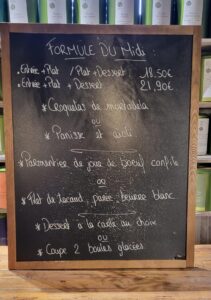 FORMULE DU Midi :
• Entrée + Plat / Plat + Dessert 18.50€
• Entrée + Plat + Dessert 21,90€
* Croquetas de
ou
* Panisse et aïoli
* Parmentier de joue de boeuf confite
ou
* Filet de , purée, beurre blanc
* Dessert a la carte au choix
ou
* Coupe 2 boules glacées